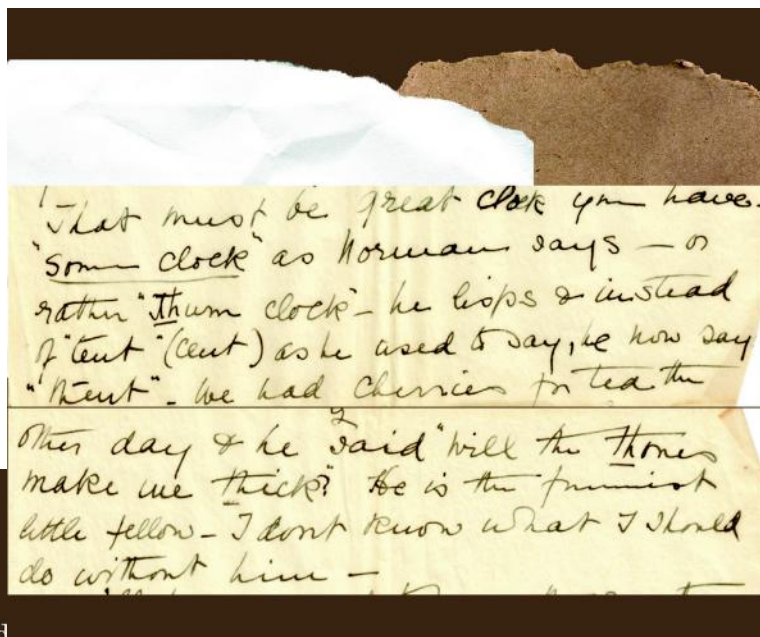 That must be great clock you have -
"Some clock" as Norman says - or
rather "thum clock" - he lisps & instead
of "tent" (cent) as he used to say, he now say
"thent" - We had cherries for tea the
other day & he said "will the thones
make me thick?" He is the funniest
little fellow - I dont know what I should
do without him -